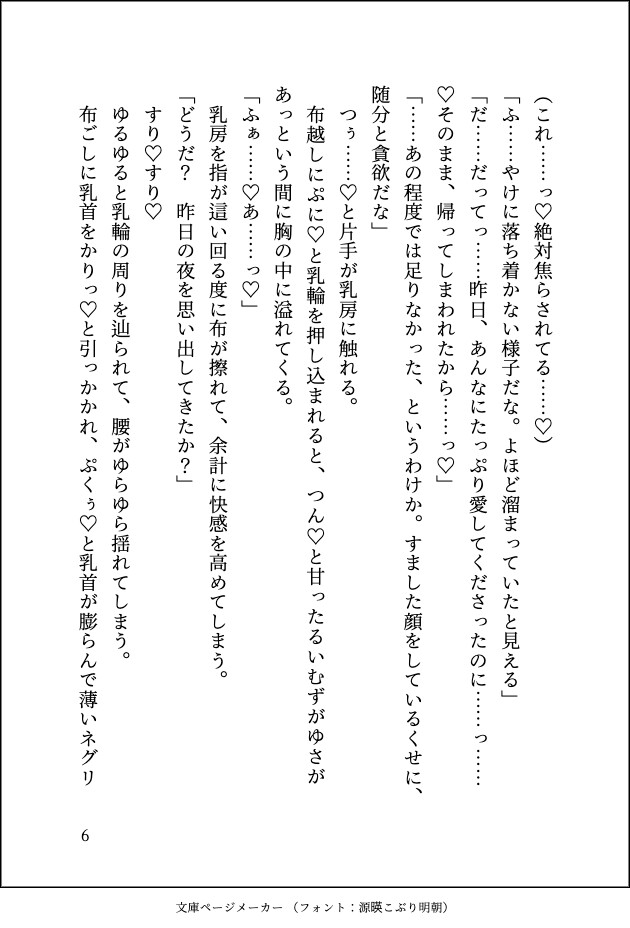 (これ……っ♡絶対焦らされてる……♡)
「ふ……やけに落ち着かない様子だな。よほど溜まっていたと見える」
「だ……だってっ……昨日、あんなにたっぷり愛してくださったのに……っ……
♡そのまま、帰ってしまわれたから……っ♡」
「……あの程度では足りなかった、というわけか。すました顔をしているくせに、
随分と貪欲だな」
つぅ……♡と片手が乳房に触れる。
布越しにぷに♡と乳輪を押し込まれると、つん♡と甘ったるいむずがゆさが
あっという間に胸の中に溢れてくる。
「ふぁ……♡あ……っ♡」
乳房を指が這い回る度に布が擦れて、余計に快感を高めてしまう。
「どうだ？　昨日の夜を思い出してきたか？」
すり♡すり♡
ゆるゆると乳輪の周りを辿られて、腰がゆらゆら揺れてしまう。
布ごしに乳首をかりっ♡と引っかかれ、ぷくぅ♡と乳首が膨らんで薄いネグリ
6
文庫ページメーカー（フォント：源暎こぶり明朝）